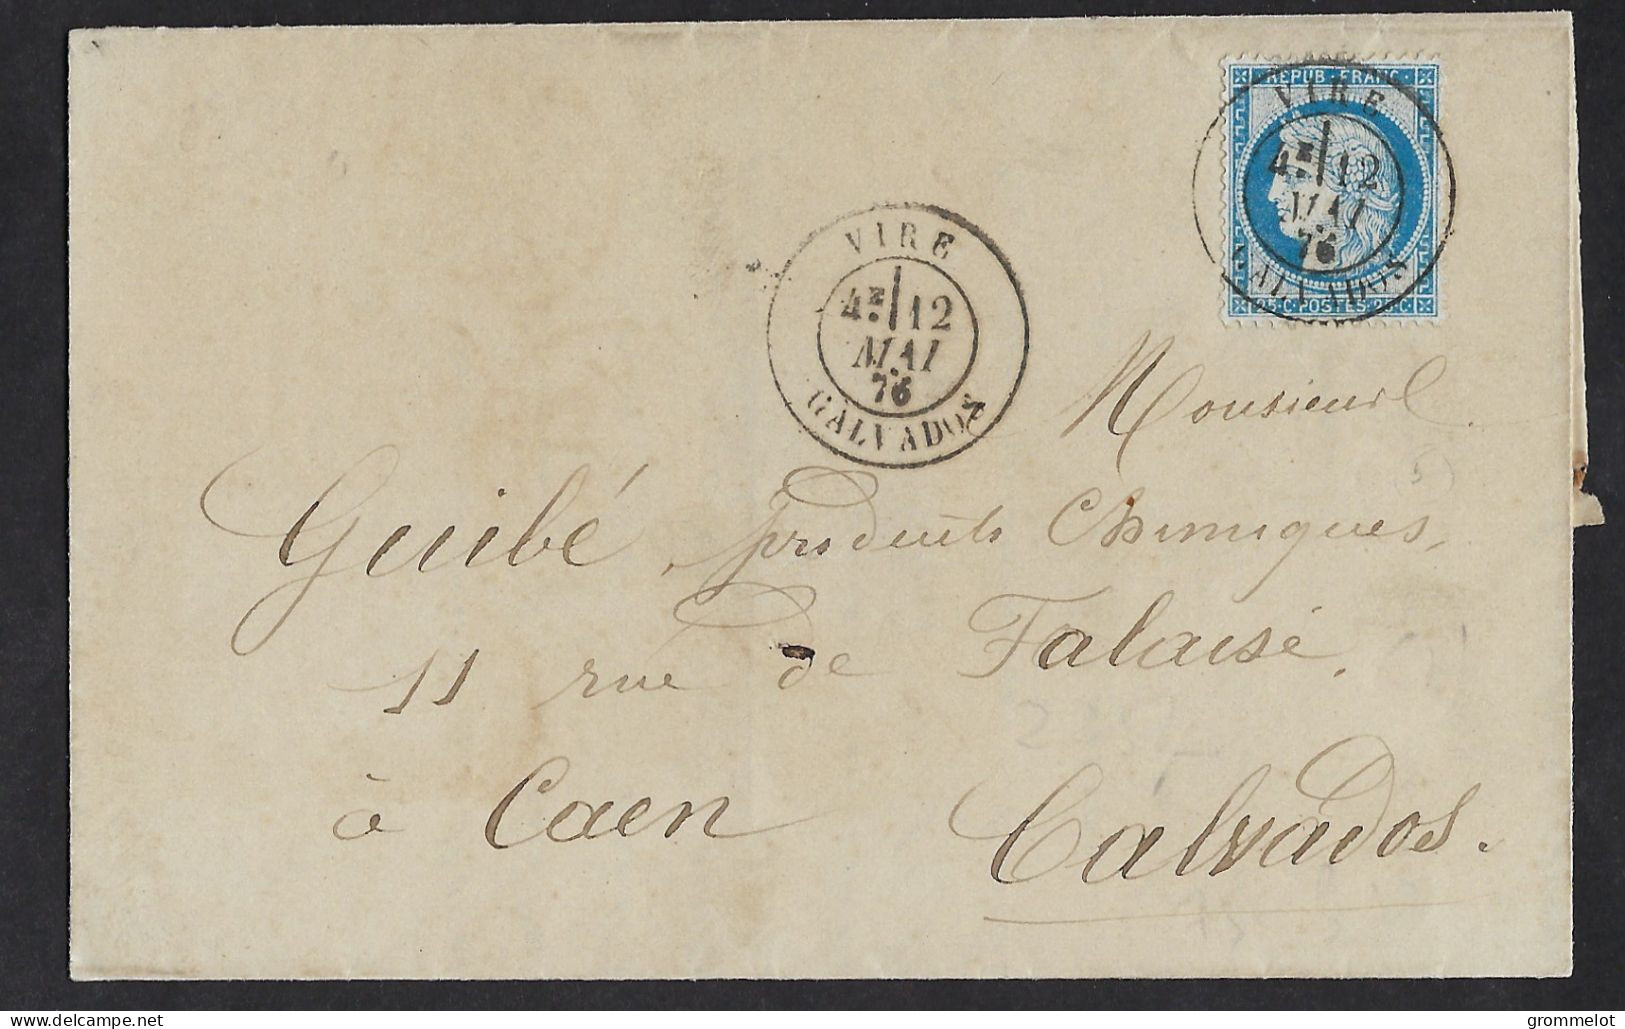 REPUB · FRANC ·
VIRE
4E 12
MAI
76
CALVADOS
25·C·POSTES·25·C
VIRE
4E 12
MAI
76
CALVADOS
Monsieur
Guibé, produits Chimiques,
11 rue de Falaise,
à Caen Calvados.
www.delcampe.net
grommelot